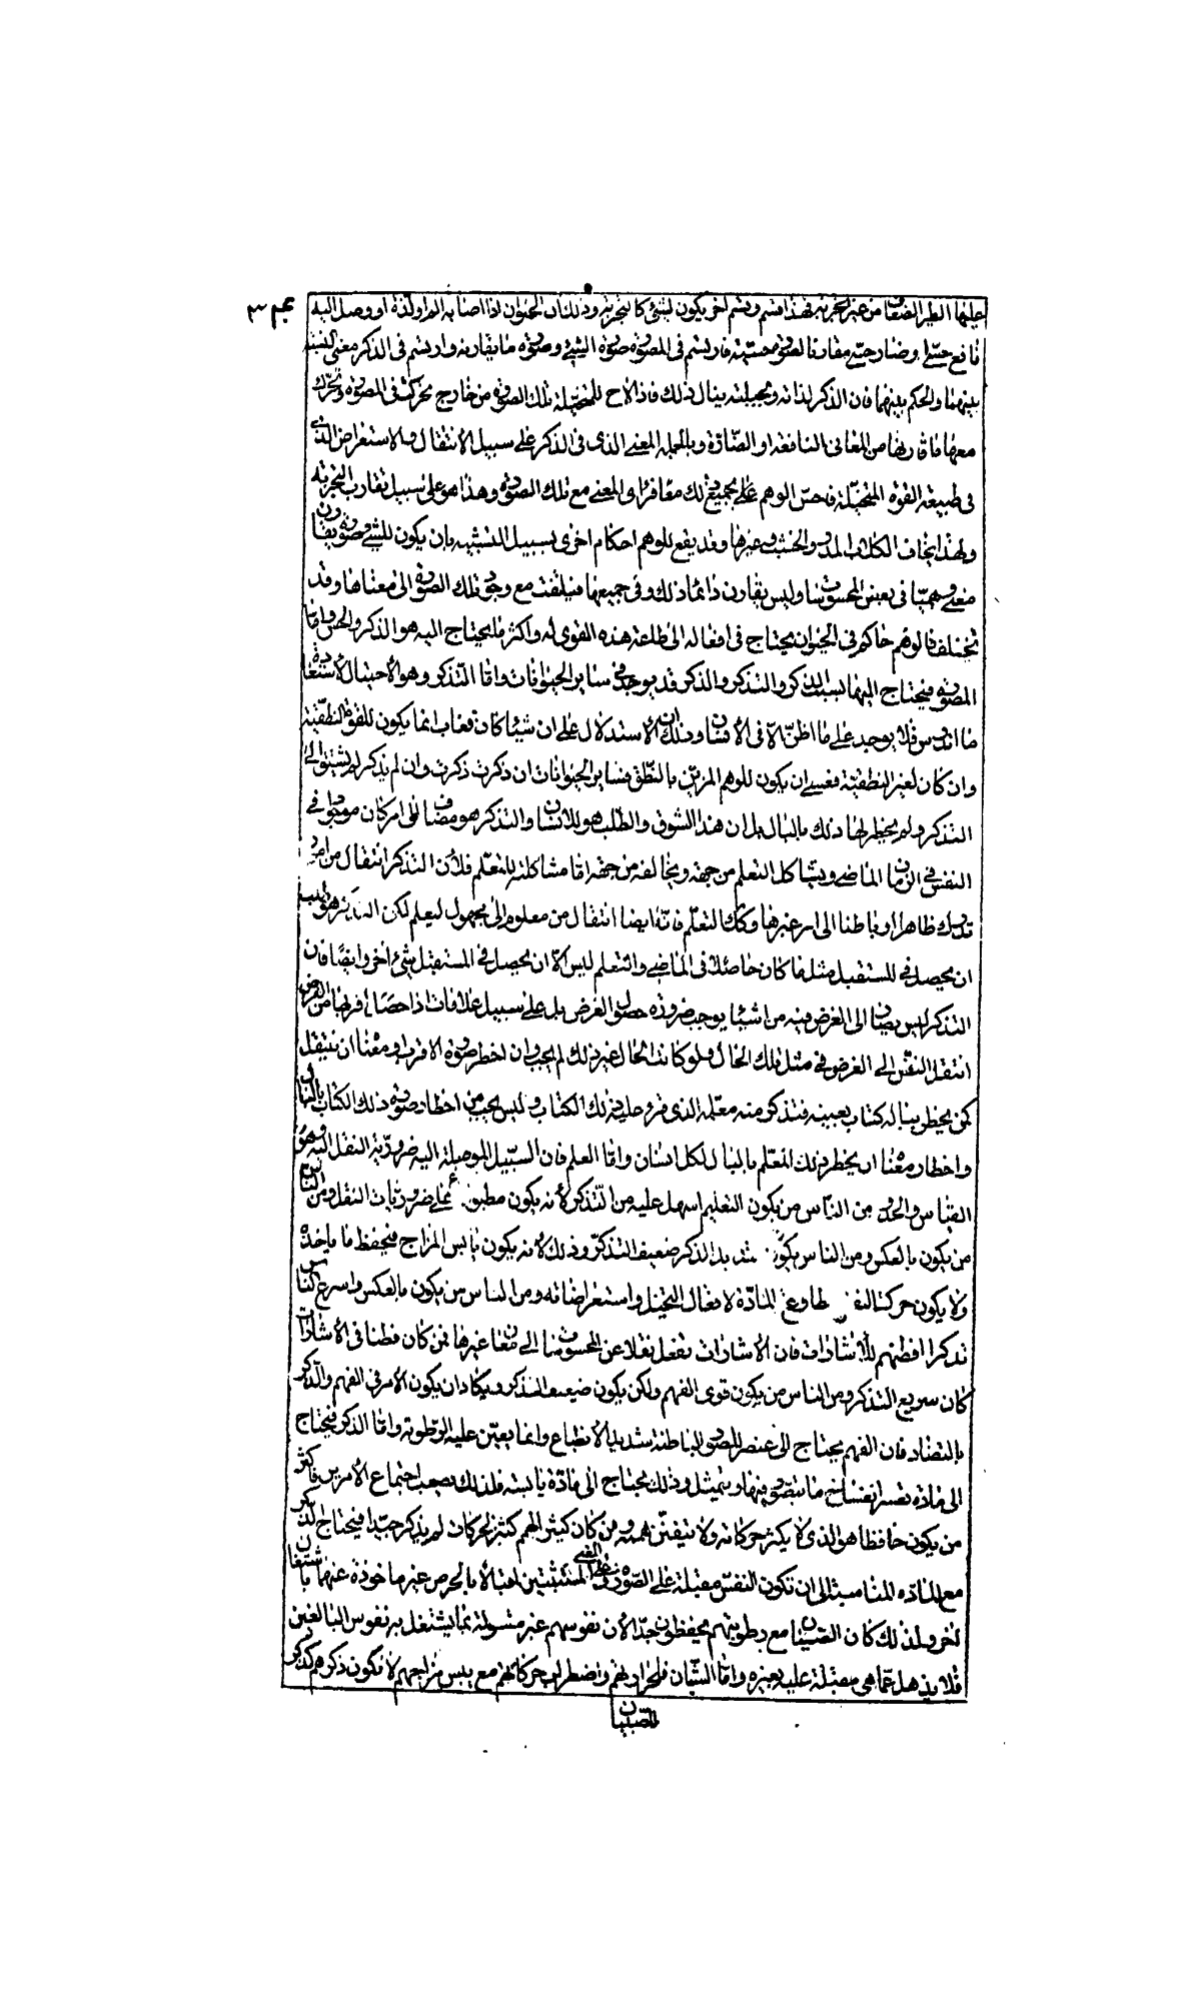 عليها الطير الضعاف من غير التجربة فهذا قسم وقسم آخر يكون لشئ كالتجربة وذلك ان الحيوان اذا اصابه الم او لذة او وصل اليه
نافع حسّى او ضار حسّى مقارنا لصورة حسّية فارتسم فى المصورة صورة الشئ وصورة ما يقارنه وارتسم فى الذكر معنى النسبة
بينهما والحكم بينهما فان الذكر لذاته وبجبلته ينال ذلك فاذا لاح للمتخيّلة تلك الصورة من خارج تحركت فى المصورة وتحرّك
معها ما قارنها من المعانى النافعة او الضّارّة وبالجملة المعنى الذى فى الذكر على سبيل الانتقال والاستعراض الذى
فى طبيعة القوّة المتخيّلة فاحسّ الوهم بجميع ذلك معا فراى المعنى مع تلك الصورة وهذا هو على سبيل تقارب التجربة
ولهذا يخاف الكلاب المدر والخشب وغيرها وقد يقع للوهم احكام اخرى بسبيل التشبيه بان يكون للشئ صورة يقارن
معنى وهميّا فى بعض المحسوسات وليس يقارن دائما ذلك وفى جميعها فيلتفت مع وجود تلك الصورة الى معناها وقد
تختلف فالوهم حاكم فى الحيوان يحتاج فى افعاله الى طاعة هذه القوى له واكثر ما يحتاج اليه هو الذكر والحس واما
المصورة فيحتاج اليها بسبب الذكر والتذكر والذكر قد يوجد فى سائر الحيوانات واما التذكر وهو الاحتيال لاستعادة
ما اندرس فلا يوجد على ما اظنّ الّا فى الانسان وذلك ان الاستدلال على ان شيئا كان فغاب انما يكون للقوة النطقيّة
وان كان لغير النطقيّة فعسى ان يكون للوهم المزيّن بالنّطق فسائر الحيوانات ان ذكرت ذكرت وان لم يذكر لم يشتق الى
التذكر ولم يخطر لها ذلك بالبال بل ان هذا الشوق والطلب هو للانسان والتذكر هو مضاف الى امر كان موجودا فى
النفس فى الزمان الماضى ويشاكل التعلم من جهة ويخالفه من جهة اما مشاكلته للتعلّم فلان التذكر انتقال من امور
تدرك ظاهرا او باطنا الى امر غيرها وكذلك التعلّم فانّه ايضا انتقال من معلوم الى مجهول ليعلم لكن التذكر هو طلب
ان يحصل فى المستقبل مثل ما كان حاصلا فى الماضى والتعلم ليس الّا ان يحصل فى المستقبل شئ آخر وايضًا فان
التذكر ليس يصار الى الغرض فيه من اشياء يوجب ضرورة حصول الغرض بل على سبيل علامات اذا حصل اقربها من الغرض
انتقل النفس الى الغرض فى مثل تلك الحال ولو كانت الحال غير ذلك لم يجب وان اخطر صورة الاقرب او معناه ان ينتقل
كمن يخطر بباله كتاب بعينه فتذكر منه معلّمه الذى قرء عليه ذلك الكتاب وليس يجب من اخطار صورة ذلك الكتاب بالبال
واخطار معناه ان يخطر ذلك المعلّم بالبال لكل انسان واما العلم فان السّبيل الموصلة اليه ضرورية النقل اليه وهو
القياس والحد ومن النّاس من يكون التعليم اسهل عليه من التّذكر لانه يكون مطبوعا على ضروريّات النقل ومن الناس
من يكون بالعكس ومن الناس من يكون شديد الذكر ضعيف التذكّر وذلك لانه يكون يابس المزاج فيحفظ ما ياخذه
ولا يكون حركة النفس مطاوع المادّة لافعال التخيل واستعراضاته ومن الناس من يكون بالعكس واسرع الناس
تذكرا افطنهم للاشارات فان الاشارات تفعل نقلا عن المحسوسات الى معان غيرها فمن كان فطنا فى الاشارات
كان سريع التذكر ومن الناس من يكون قوى الفهم ولكن يكون ضعيف التذكر ويكاد ان يكون الامر فى الفهم والذكر
بالتضاد فان الفهم يحتاج الى عنصر للصور الباطنة شديد الانطباع وانما يعين عليه الرطوبة واما الذكر فيحتاج
الى مادّة تعسر انفساخ ما يتصور فيها ويتمثل وذلك يحتاج الى مادّة يابسة فلذلك يصعب اجتماع الامرين فاكثر
من يكون حافظا هو الذى لا يكثر حركاته ولا تتفنّن هممه ومن كان كثير الهمم كثير الحركات لم يذكر جيّدا فيحتاج الذكر
مع المادّة المناسبة الى ان تكون النفس مقبلة على الصّورة وعلى المعنى المستثبتين اقبالا بالحرص غير ماخوذة عنهما باشتغال
آخر ولذلك كان الصبيان مع رطوبتهم يحفظون جدّا لان نفوسهم غير مشغولة بما يشتغل به نفوس البالغين
فلا يذهل عمّا هى مقبلة عليه بغيره واما الشبّان فلحرارتهم واضطراب حركاتهم مع يبس مزاجهم لا تكون ذكرهم كذكر
الصّبيان